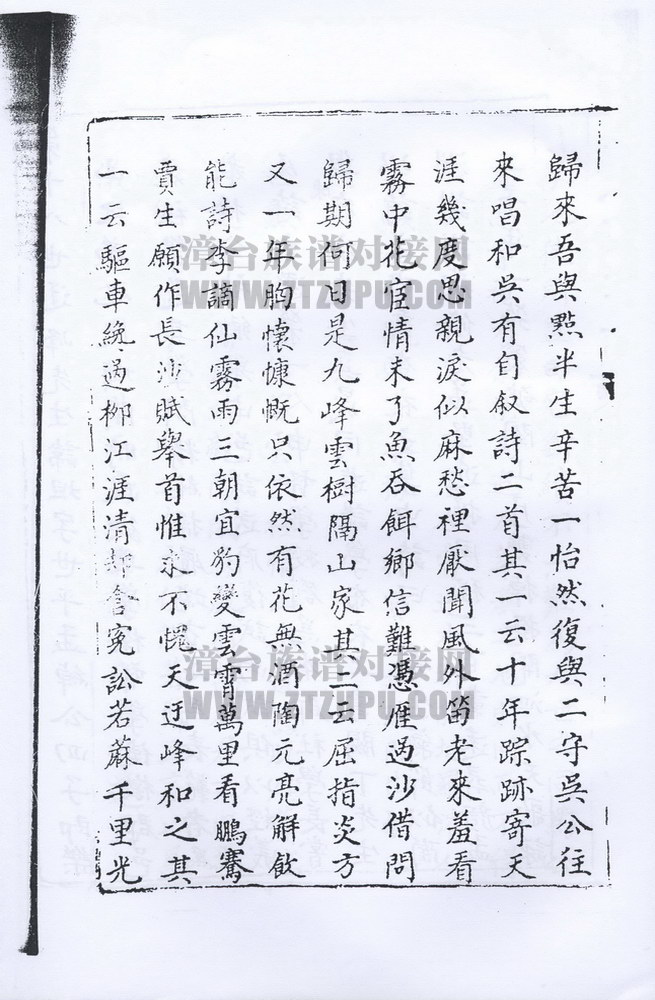 歸來吾與點半生辛苦一怡然復與二守吳公往
來唱和吳有自叙詩二首其一云十年踪跡寄天
涯幾度思親淚似麻愁裡厭聞風外笛老來羞看
霧中花宦情未了魚吞餌鄉信難憑雁過沙借問
歸期何日是九峰雲樹隔山家其二云屈指炎方
又一年胸懷慷慨只依然有花無酒陶元亮觧飲
能詩李謫仙霧雨三朝宜豹變雲霄萬里看鵬騫
賈生願作長沙賦舉首惟求不愧天迂峰和之其
一云驅車繞過栁江涯清却含寃訟若蔴千里光
漳台族谱对接网
WWW.ZTZUPU.COM
漳台族谱对接网
WWW.ZTZUPU.COM